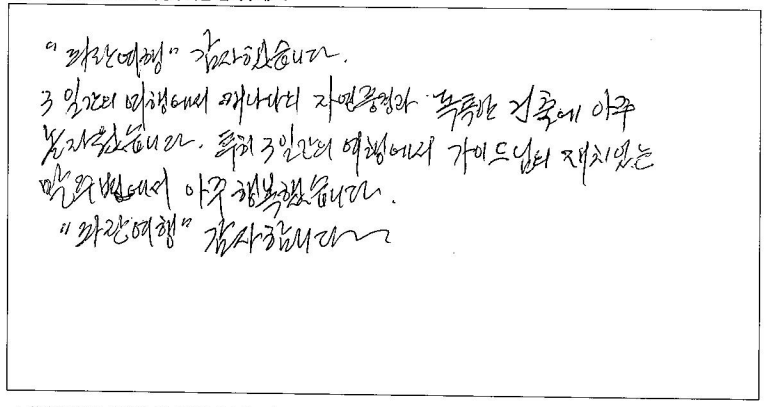 "파란여행" 감사했습니다.
3일간의 여행에서 캐나다의 자연풍경과 독특한 건축에 아주
놀라웠습니다. 특히 3일간의 여행에서 가이드님의 재치있는
말과 에서 아주 행복했습니다.
"파란여행" 감사합니다~~